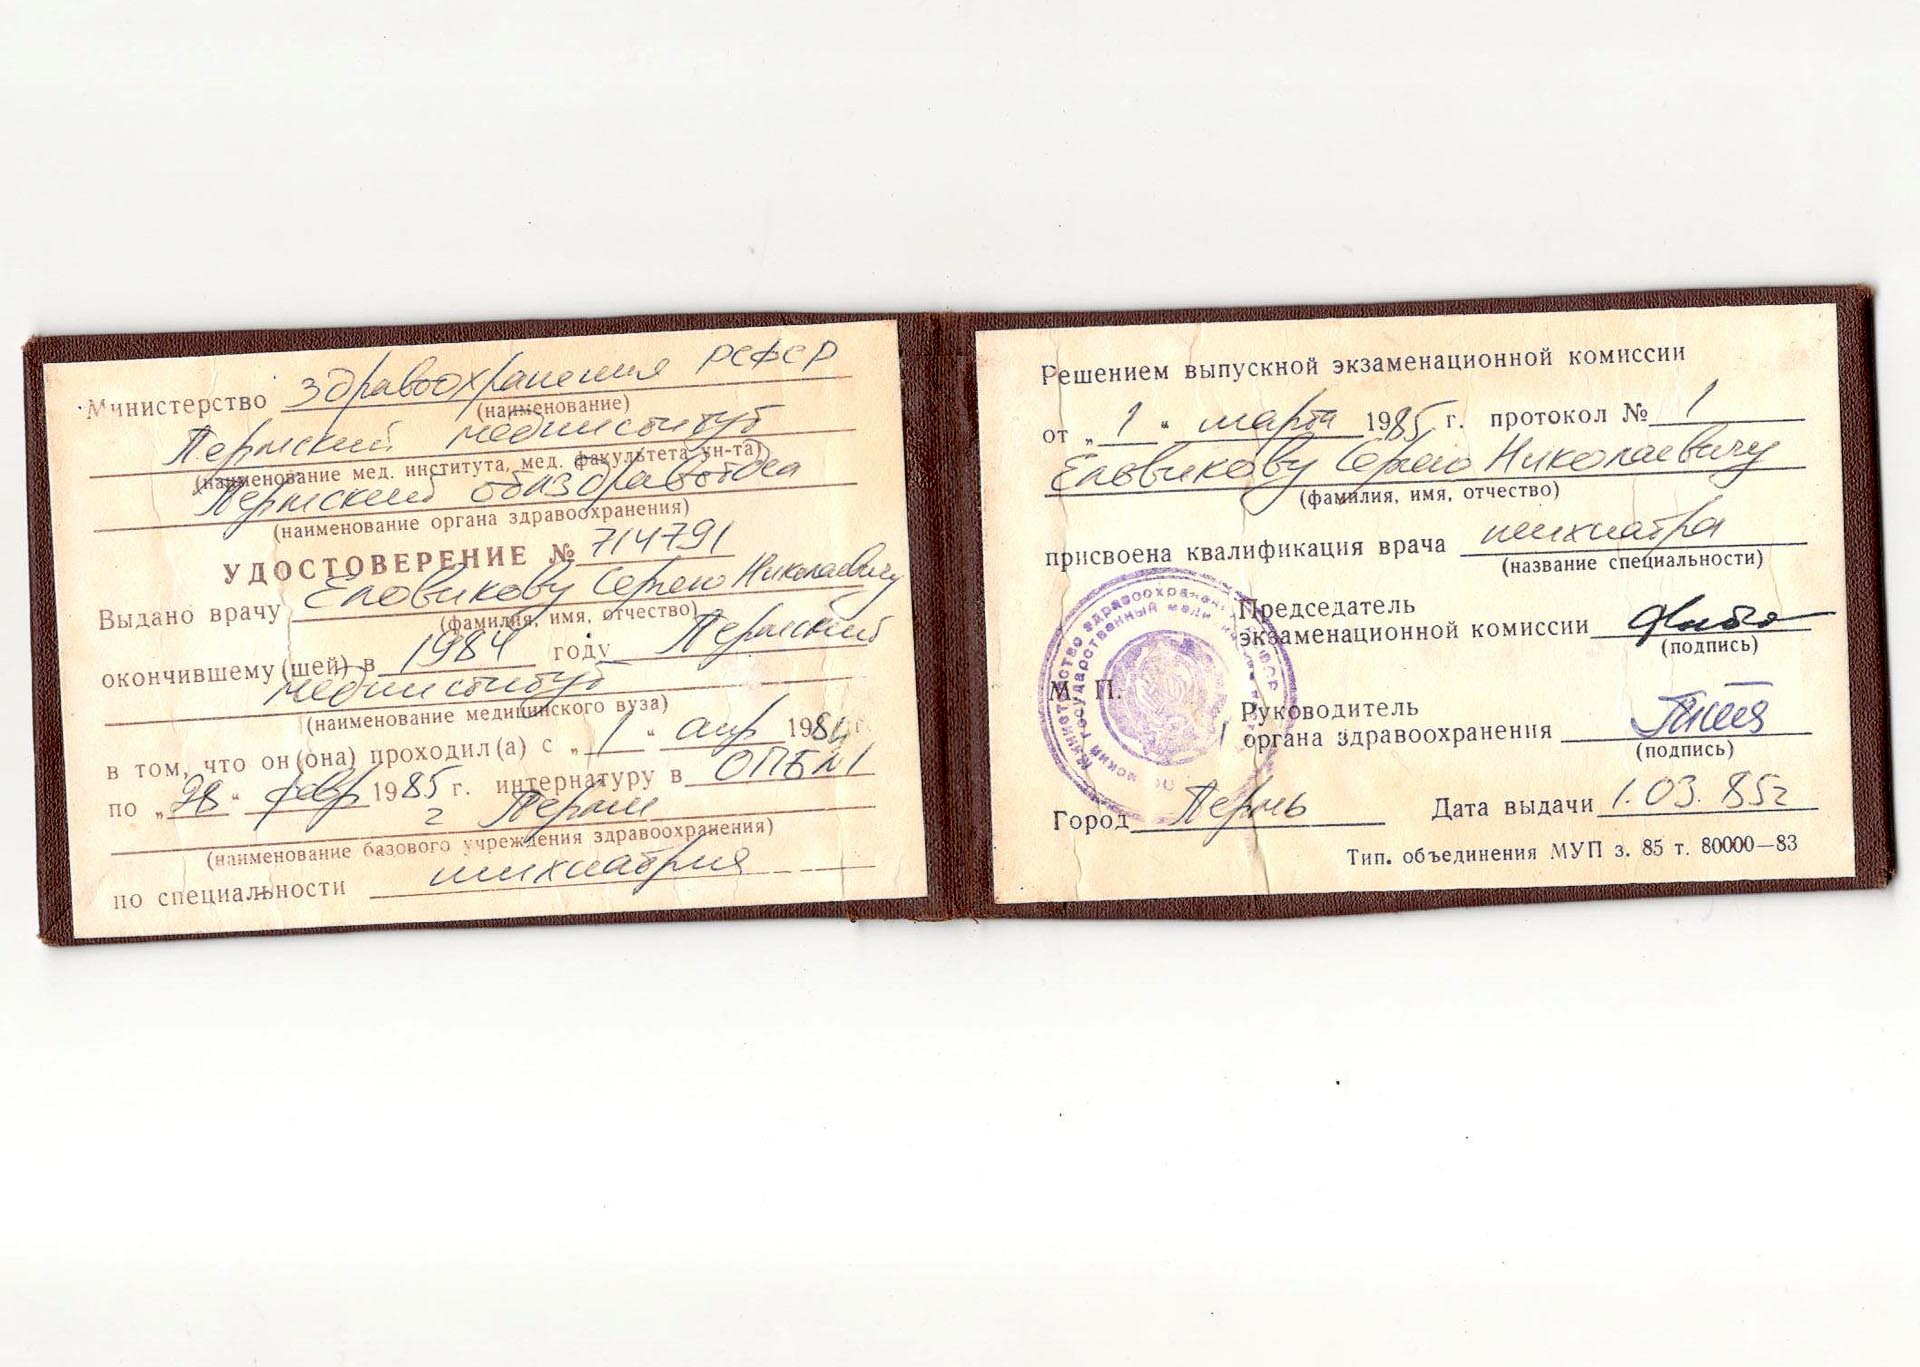 Министерство здравоохранения РСФСР
(наименование)
Пермский мединститут
(наименование мед. института, мед. факультета ун-та)
Пермский облздравотдел
(наименование органа здравоохранения)
УДОСТОВЕРЕНИЕ № 714791
Выдано врачу Еловикову Сергею Николаевичу
(фамилия, имя, отчество)
окончившему (шей) в 1984 году Пермский
мединститут
(наименование медицинского вуза)
в том, что он (она) проходил(а) с „1“ апр 1984 г.
по „28“ февр 1985 г. интернатуру в ОПБ №1
г Перми
(наименование базового учреждения здравоохранения)
по специальности психиатрия
Решением выпускной экзаменационной комиссии
от „1“ марта 1985 г. протокол № 1
Еловикову Сергею Николаевичу
(фамилия, имя, отчество)
присвоена квалификация врача психиатра
(название специальности)
Председатель
экзаменационной комиссии
(подпись)
М. П.
Руководитель
органа здравоохранения
(подпись)
Город Пермь Дата выдачи 1.03.85г
Тип. объединения МУП з. 85 т. 80000—83
Министерство здравоохранения
государственный меди